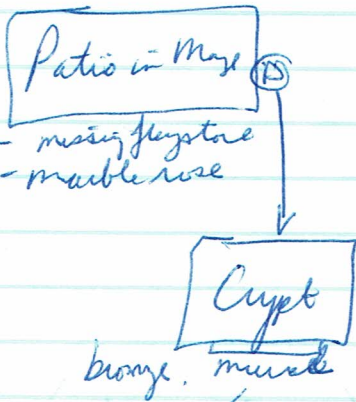 Patio in Maze
D
- missing flagstone
- marble rose
Crypt
bronze,